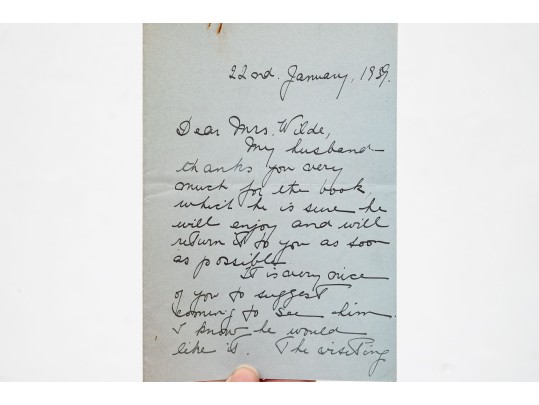 22nd. January, 1939.
Dear Mrs. Wilde,
My husband
thanks you very
much for the book,
which he is sure he
will enjoy and will
return it to you as soon
as possible
It is very nice
of you to suggest
coming to see him.
I know he would
like it. The visiting